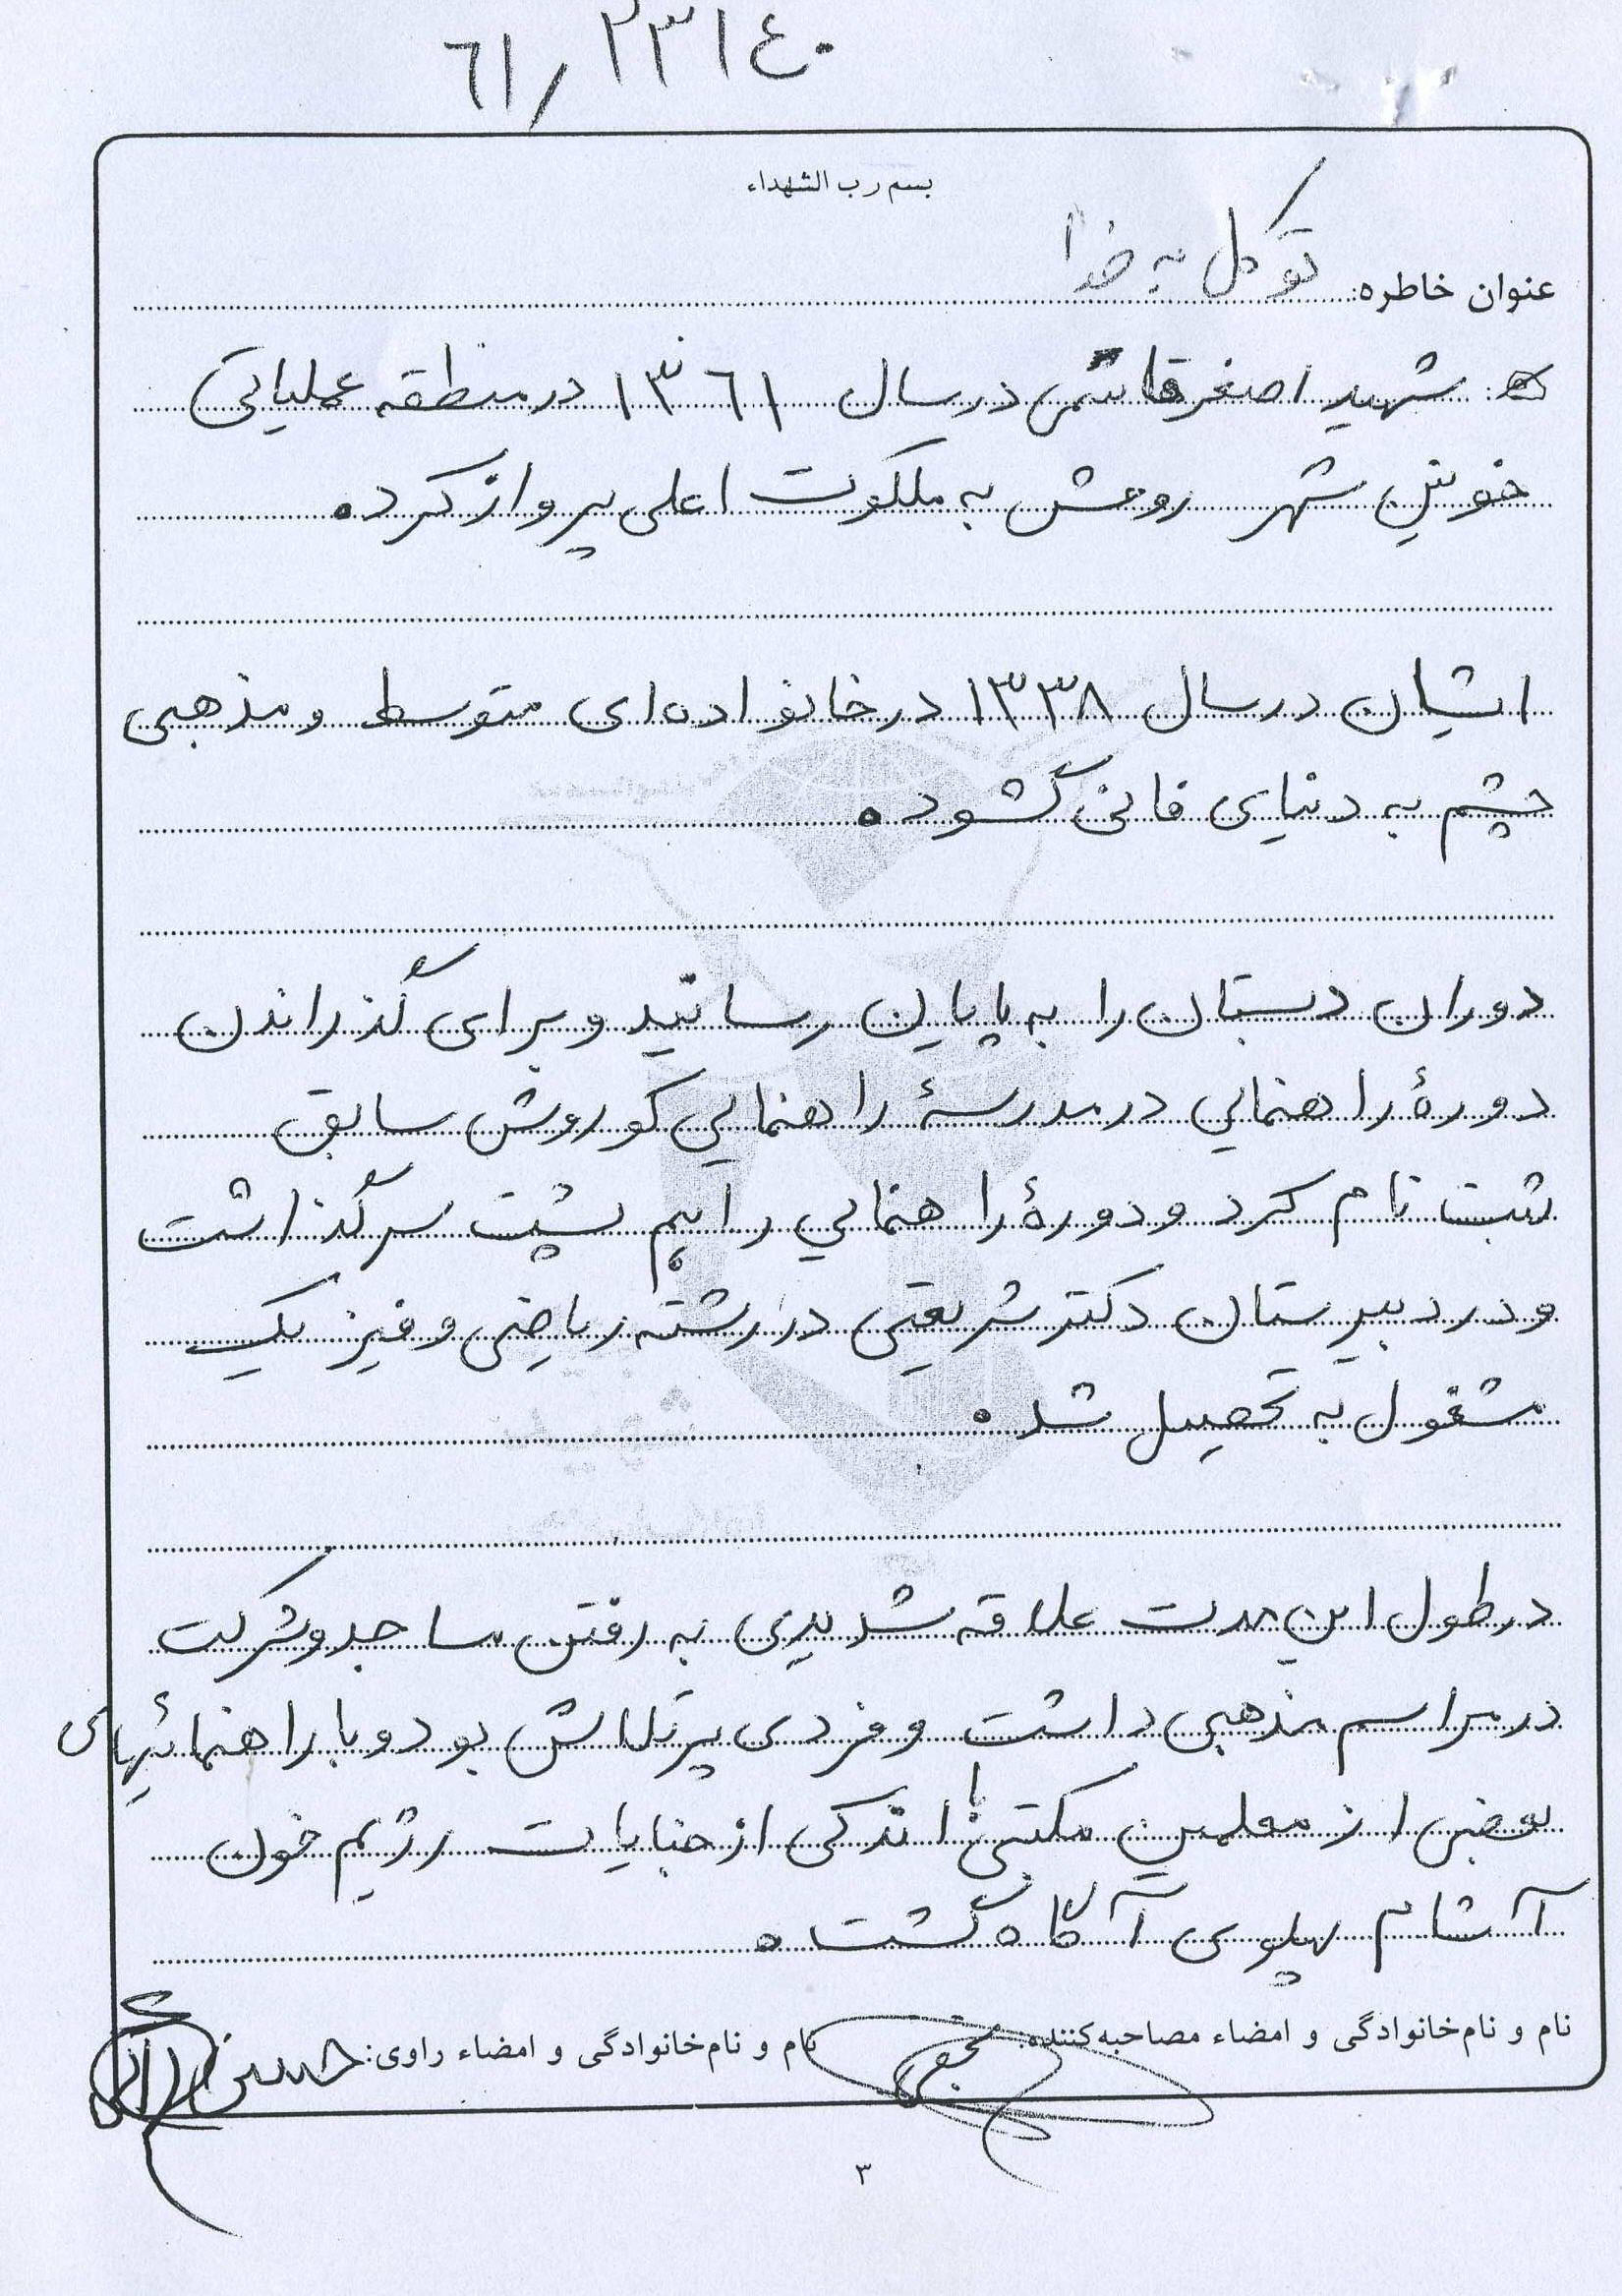 ٦١/٢٣١٤٠
بسم رب الشهداء
عنوان خاطره: توکل به خدا
شهید اصغر قاسمی در سال ١٣٦١ در منطقه عملیاتی
خونین شهر روحش به ملکوت اعلی پرواز کرد.
ایشان در سال ١٣٣٨ در خانواده‌ای متوسط و مذهبی
چشم به دنیای فانی گشود.
دوران دبستان را به پایان رسانید و برای گذراندن
دورهٔ راهنمایي در مدرسهٔ راهنمایي کوروش سابق
ثبت نام کرد و دورهٔ راهنمایي را هم پشت سر گذاشت
و در دبیرستان دکتر شریعتی در رشته ریاضی و فیزیک
مشغول به تحصیل شد.
در طول این مدت علاقه شدیدی به رفتن مساجد و شرکت
در مراسم مذهبی داشت و فردی پرتلاش بود و با راهنمائیهای
بعضی از معلمین مکتبی با اندکی از جنایات رژیم خون
آشام پهلوی آگاه گشت.
نام و نام‌خانوادگی و امضاء مصاحبه‌کننده: نام و نام‌خانوادگی و امضاء راوی:
٣